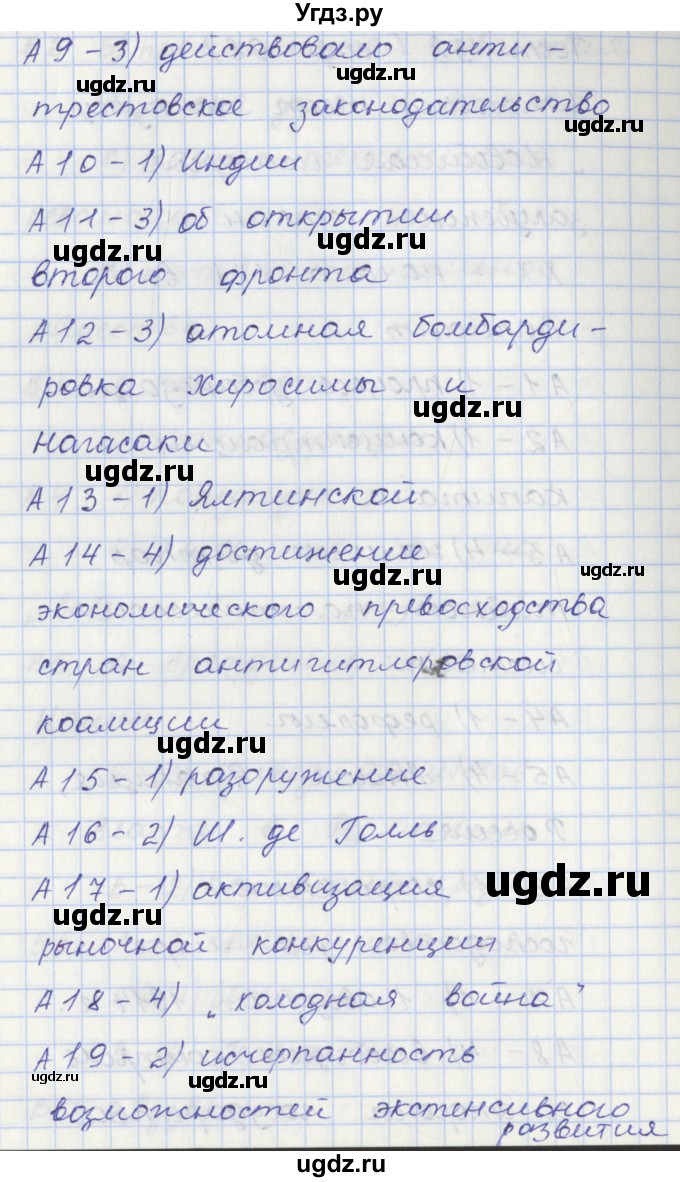 Угдз.ру
А9 – 3) действовало анти –
ugdz.ru ugdz.ru
трестовское законодательство
ugdz.ru
А10 – 1) Индии
А11 – 3) об открытии
ugdz.ru ugdz.ru
второго фронта
А12 – 3) атомная бомбарди –
ровка Хиросимы и
ugdz.ru
Нагасаки
ugdz.ru
А13 – 1) Ялтинской
А14 – 4) достижение
ugdz.ru ugdz.ru
экономического превосходства
стран антигитлеровской
коалиции
ugdz.ru
А15 – 1) разоружение
А16 – 2) Ш. де Голль
А17 – 1) активизация
ugdz.ru
ugdz.ru
рыночной конкуренции
А18 – 4) „холодная война”
А19 – 2) исчерпанность
ugdz.ru ugdz.ru
возможностей экстенсивного
развития
ugdz.ru
ugdz.ru